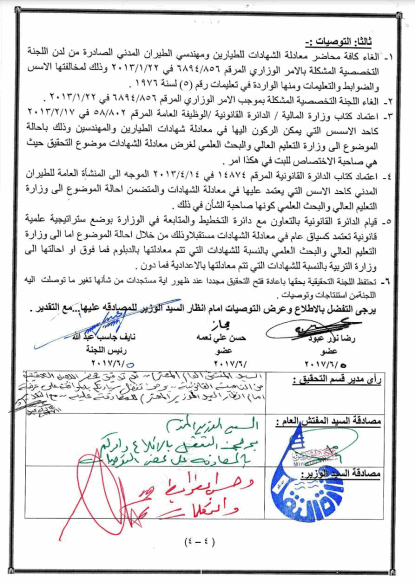 ثالثا: التوصيات :-
١- الغاء كافة محاضر معادلة الشهادات للطيارين ومهندسي الطيران المدني الصادرة من لدن اللجنة
التخصصية المشكلة بالامر الوزاري المرقم ٦٨٩٤/٨٥٦ في ٢٠١٣/١/٢٢ وذلك لمخالفتها الاسس
والضوابط والتعليمات ومنها الواردة في تعليمات رقم (٥) لسنة ١٩٧٦ .
٢- الغاء اللجنة التخصصية المشكلة بموجب الامر الوزاري المرقم ٦٨٩٤/٨٥٦ في ٢٠١٣/١/٢٢ .
٣- اعتماد كتاب وزارة المالية / الدائرة القانونية /الوظيفة العامة المرقم ٥٨/٨٠٢ في ٢٠١٣/٢/١٧
كاحد الاسس التي يمكن الركون اليها في معادلة شهادات الطيارين والمهندسين وذلك باحالة
الموضوع الى وزارة التعليم العالي والبحث العلمي لغرض معادلة الشهادات موضوع التحقيق حيث
هي صاحبة الاختصاص للبت في هكذا امر .
٤- اعتماد كتاب الدائرة القانونية المرقم ١٤٨٧٤ في ٢٠١٣/٤/١٤ الموجه الى المنشأة العامة للطيران
المدني كاحد الاسس التي يعتمد عليها في معادلة الشهادات والمتضمن احالة الموضوع الى وزارة
التعليم العالي والبحث العلمي كونها صاحبة الشأن في ذلك .
٥- قيام الدائرة القانونية بالتعاون مع دائرة التخطيط والمتابعة في الوزارة بوضع ستراتيجية علمية
قانونية تعتمد كسياق عام في معادلة الشهادات مستقبلاوذلك من خلال احالة الموضوع اما الى وزارة
التعليم العالي والبحث العلمي بالنسبة للشهادات التي تتم معادلتها بالدبلوم فما فوق او احالتها الى
وزارة التربية بالنسبة للشهادات التي تتم معادلتها بالاعدادية فما دون .
٦- تحتفظ اللجنة التحقيقية بحقها باعادة فتح التحقيق مجددا عند ظهور اية مستجدات من شأنها تغير ما توصلت اليه
اللجنةمن استنتاجات وتوصيات .
يرجى التفضل بالاطلاع وعرض التوصيات امام انظار السيد الوزير للمصادقه عليها...مع التقدير .
مجاز
رضا نور عبود
حسن علي نعمه
نايف جاسب عبد الله
عضو
عضو
رئيس اللجنة
٢٠١٧/٦/٥
٢٠١٧/٦/
٢٠١٧/٦/٥
رأي مدير قسم التحقيق :
مصادقة السيد المفتش العام :
السيد الوزير المحترم
مصادقة السيد الوزير:
(٤ – ٤)